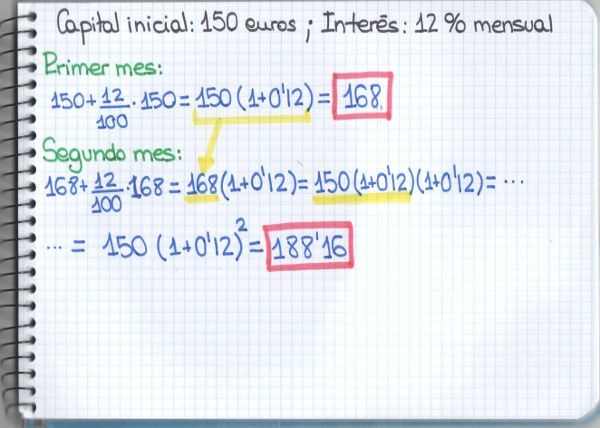 Capital inicial: 150 euros ; Interés: 12 % mensual
Primer mes:
150 + 12/100 · 150 = 150 (1+0'12) = 168
Segundo mes:
168 + 12/100 · 168 = 168 (1+0'12) = 150 (1+0'12)(1+0'12) = ...
... = 150 (1+0'12)² = 188'16